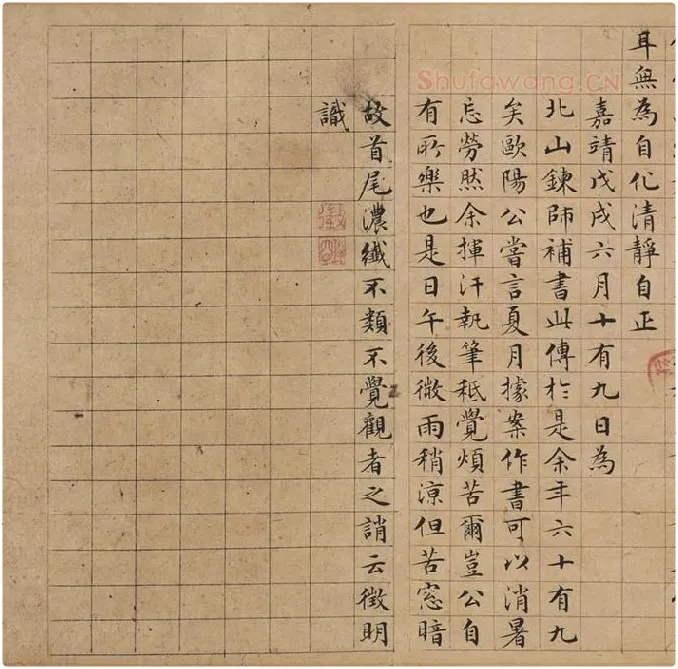 耳無為自化清靜自正
嘉靖戊戌六月十有九日為
北山鍊師補書此傳於是余年六十有九
矣歐陽公嘗言夏月據案作書可以消暑
忘勞然余揮汗執筆秪覺煩苦爾豈公自
有所樂也是日午後微雨稍涼但苦窓暗
故首尾濃纖不類不覺觀者之誚云徵明
識
徵明
Shufawang.CN